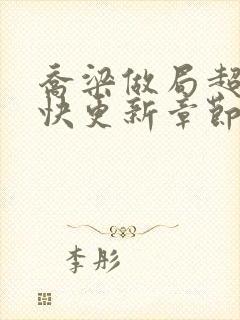 乔梁做局超
快更新章节
李彤